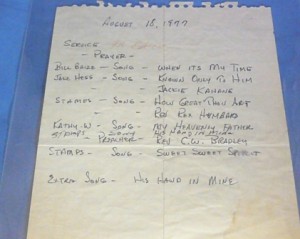 August 18, 1977
Service
- Prayer -
Bill Baize - Song - When It's My Time
Jake Hess - Song - Known Only To Him
- Jackie Kahane
Stamps - Song - How Great Thou Art
- Rex Humbard
Kathy W - Song - My Heavenly Father
Stamps - Song - His Hand in Mine
Preacher - Rev C.W. Bradley
Stamps - Song - Sweet Sweet Spirit
Extra Song - His Hand In Mine